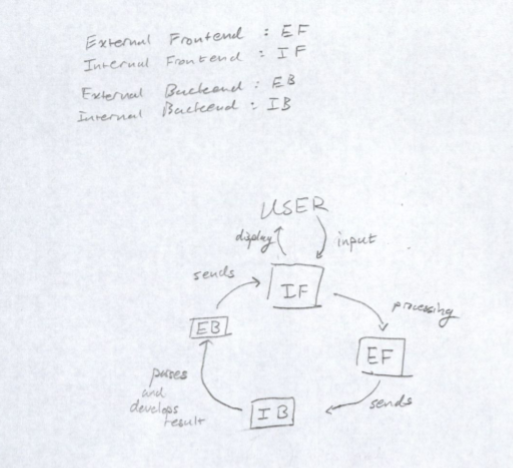 External Frontend : EF
Internal Frontend : IF
External Backend : EB
Internal Backend : IB
USER
display
input
sends
IF
processing
EB
EF
parses
and
develops
result
sends
IB